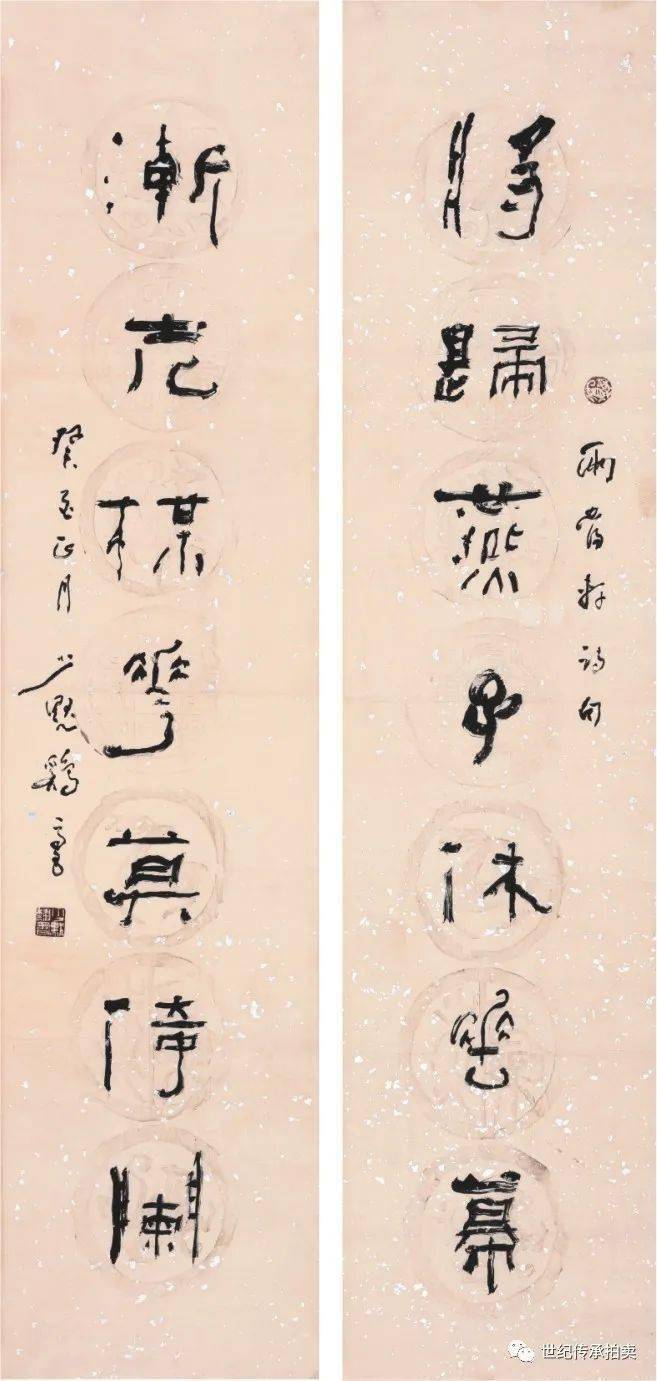 將歸燕子休垂幕
兩當軒詩句
漸老楳華莫倚闌
癸酉正月 少默
世纪传承拍卖